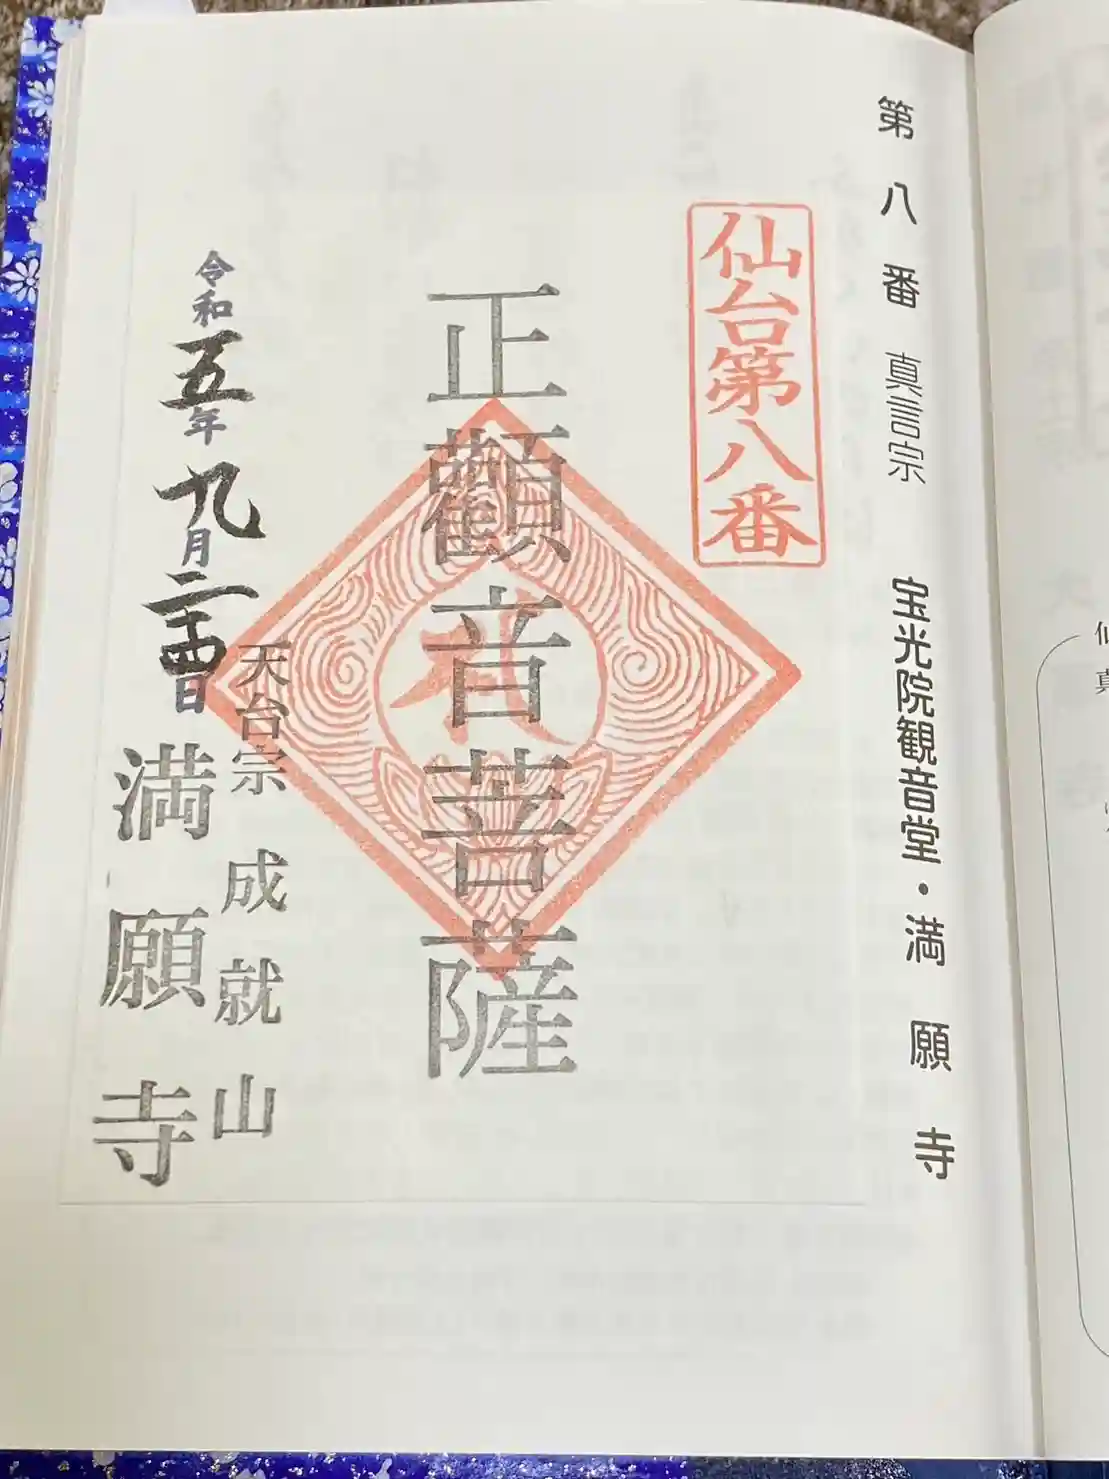 第八番 真言宗 宝光院観音堂・満願寺
仙台第八番
正觀音菩薩
令和五年九月二十四日
天台宗 成就山
満願寺
仙
真